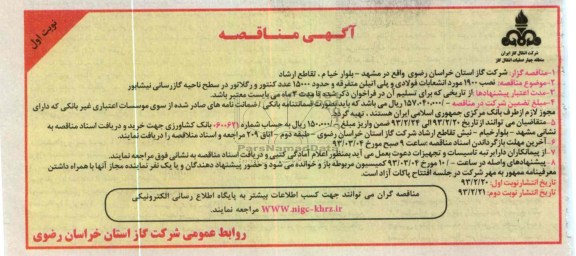 آگهی مناقصه
نوبت اول
شرکت انتقال گاز ایران
منطقه چهار عملیات انتقال گاز
۱-مناقصه گزار: شرکت گاز استان خراسان رضوی واقع در مشهد - بلوار خیام . تقاطع ارشاد
۲-موضوع مناقصه: نصب ۱۹۰۰ مورد انشعابات فولادی و پلی اتیلن متفرقه و حدود ۱۵۰۰۰ عدد کنتور و رگلاتور در سطح ناحیه گازرسانی نیشابور
۳-مدت اعتبار پیشنهادها: از تاریخی که برای تسلیم آن در فراخوان ذکر شده تا مدت ۳ ماه می بایست معتبر باشد.
۴-مبلغ تضمین شرکت در مناقصه – /۱۵۷/۰۴۰/۰۰۰ ریال می باشد که باید بصورت ضمانتنامه بانکی /ضمانت نامه های صادر شده از سوی موسسات اعتباری غیر بانکی که دارای
مجوز لازم از طرف بانک مرکزی جمهوری اسلامی ایران هستند، تهیه گردد.
۵- متقاضیان می توانند از تاریخ ۹۳/۲/۲۰ الی ۹۳/۲/۲۴ ضمن واریز مبلغ – /۱۵۰/۰۰۰ ریال به حساب شماره ۶۰۰۶۲۱ بانک کشاورزی جهت خرید و دریافت اسناد مناقصه به
نشانی مشهد - بلوار خیام - نبش تقاطع ارشاد شرکت گاز استان خراسان رضوی - طبقه دوم - اتاق ۲۰۹ مراجعه و اسناد مناقصه را دریافت نمایند.
۶- آخرین مهلت بازگرداندن اسناد مناقصه ساعت ۹ صبح مورخ ۹۳/۰۳/۰۴
۷- از پیمانکاران دارای رتبه تاسیسات و تجهیزات دعوت بعمل می آید بمنظور اعلام آمادگی کتبی و دریافت اسناد مناقصه به نشانی فوق مراجعه نمایند.
۸- پیشنهادهای واصله در ساعت – /۱۰ مورخ ۹۳/۰۳/۰۴ کمیسیون مربوطه باز و خوانده می شود و حضور پیشنهاد دهندگان و یا یک نفر نماینده مجاز آنها با همراه داشتن
معرفینامه ممهور به مهر شرکت در جلسه افتتاح پاکات آزاد است.
تاریخ انتشار نوبت اول: ۹۳/۲/۲۰
تاریخ انتشار نوبت دوم: ۹۳/۲/۲۱
مناقصه گران می توانند جهت کسب اطلاعات بیشتر به پایگاه اطلاع رسانی الکترونیکی
WWW.nigc-khrz.ir مراجعه نمایند.
روابط عمومی شرکت گاز استان خراسان رضوی